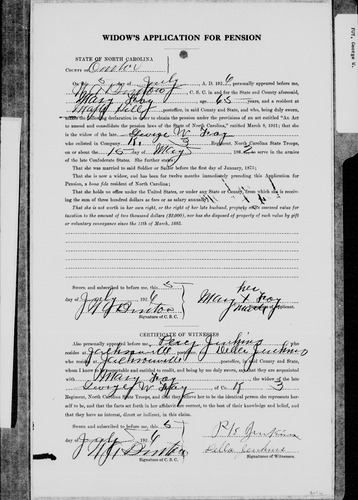 FOY, George W.
WIDOW'S APPLICATION FOR PENSION
STATE OF NORTH CAROLINA
COUNTY OF Onslow
On this 5 day of July A. D. 1926, personally appeared before me,
C. S. C. in and for the State and County aforesaid,
Mary Foy, age 65 years, and a resident at
postoffice, in said County and State, who, being duly sworn,
makes the following declaration in order to obtain the pension under the provisions of an act entitled "An Act
to amend and consolidate the pension laws of the State of North Carolina," ratified March 8, 1921; that she
is the widow of the late George W Foy
who enlisted in Company K 3 Regiment, North Carolina State Troops,
on or about the 15 day of May, 186 to serve in the armies
of the late Confederate States. She further states:
That she was married to said Soldier or Sailor before the first day of January, 1871;
That she is now a widow, and has been for twelve months immediately preceding this Application for
Pension, a bona fide resident of North Carolina;
That she holds no office under the United States, or under any State or County, from which she is receiving
the sum of three hundred dollars as fees or as salary annually;
That she is not worth in her own right, or the right of her late husband, property at its assessed value for
taxation to the amount of two thousand dollars ($2,000), nor has she disposed of property of such value by gift
or voluntary conveyance since the 11th of March, 1885.
Sworn and subscribed to before me, this 5
day of July, 1926
her
Mary X Foy
mark
Signature of C. S. C.
CERTIFICATE OF WITNESSES
Also personally appeared before me, Percy Jenkins, who
resides at Jacksonville postoffice, and Della Jenkins, who
resides at Jacksonville postoffice, in said County and State,
whom I know to be respectable and entitled to credit, and being by me duly sworn, say that they are acquainted
with Mary Foy, the widow of the late
George W Foy, of Co. K 3
Regiment, North Carolina State Troops, and that they believe her to be the identical person she represents her-
self to be, and that the facts set forth in her affidavit are correct, to the best of their knowledge and belief, and that
they have no interest, direct or indirect, in this claim.
Sworn and subscribed to before me, this 5
day of July, 1926
Jenkins
Della Jenkins
Signature of C. S. C.
Signatures of Witnesses.